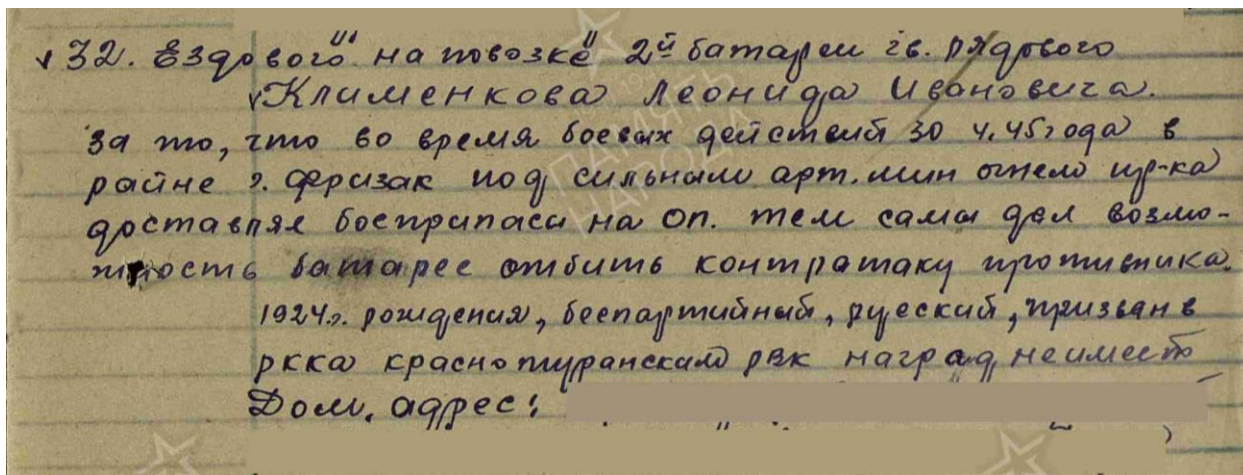 32. Ездового на повозке 2й батареи гв. рядового
Клименкова Леонида Ивановича.
За то, что во время боевых действий 30 4.45 года в
районе г. Фризак под сильным арт. мин огнем пр-ка
доставлял боеприпасы на ОП. тем самы дал возмо-
жность батарее отбить контратаку противника.
1924 г. рождения, беспартийный, русский, призван в
РККА Краснотуранским РВК наград не имеет
Дом. адрес:
ПАМЯТЬ
НАРОДА